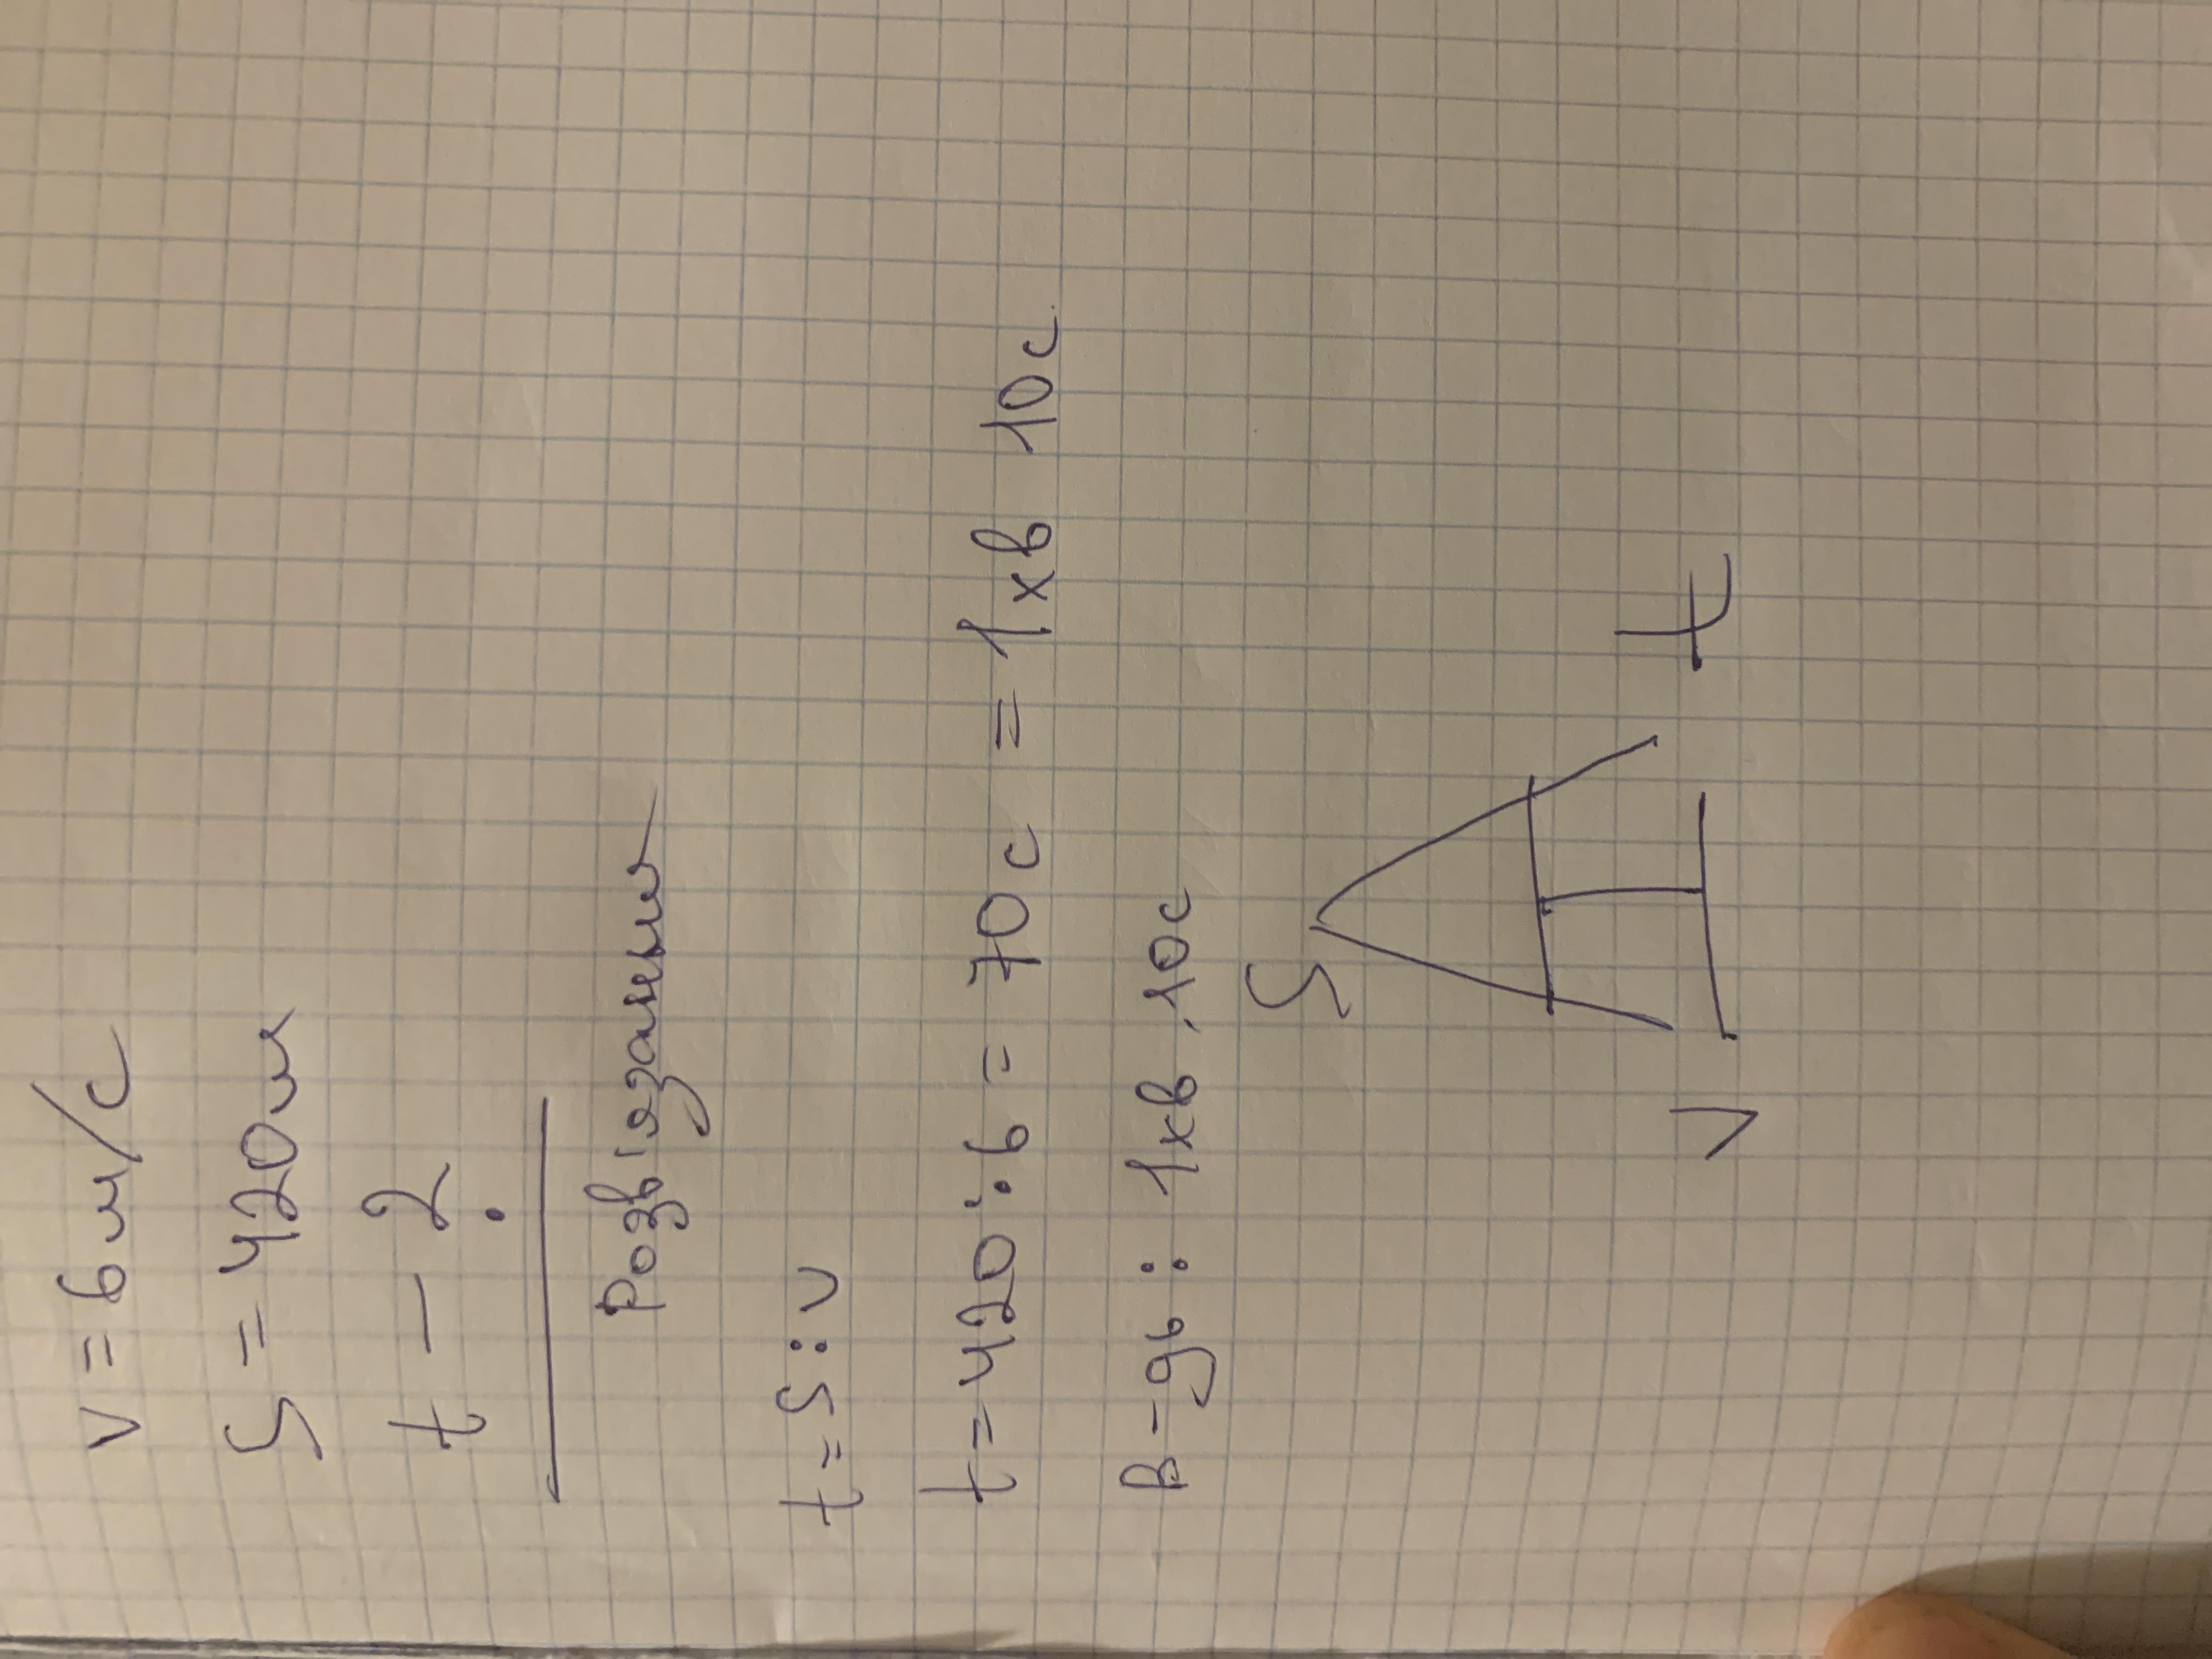 v = 6 м/с
S = 420 м
t – ?
Розв'язання
t = S : v
t = 420 : 6 = 70 с = 1 хв 10 с
В-дь : 1 хв. 10 с
S
v t